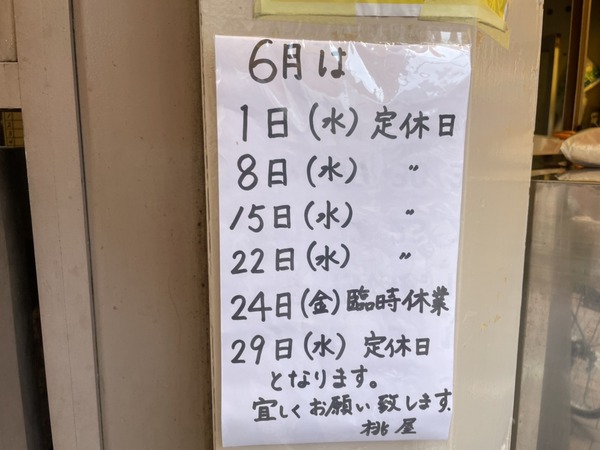 6月は
1日(水)定休日
8日(水) 〃
15日(水) 〃
22日(水) 〃
24日(金)臨時休業
29日(水)定休日
となります。
宜しくお願い致します.
桃屋